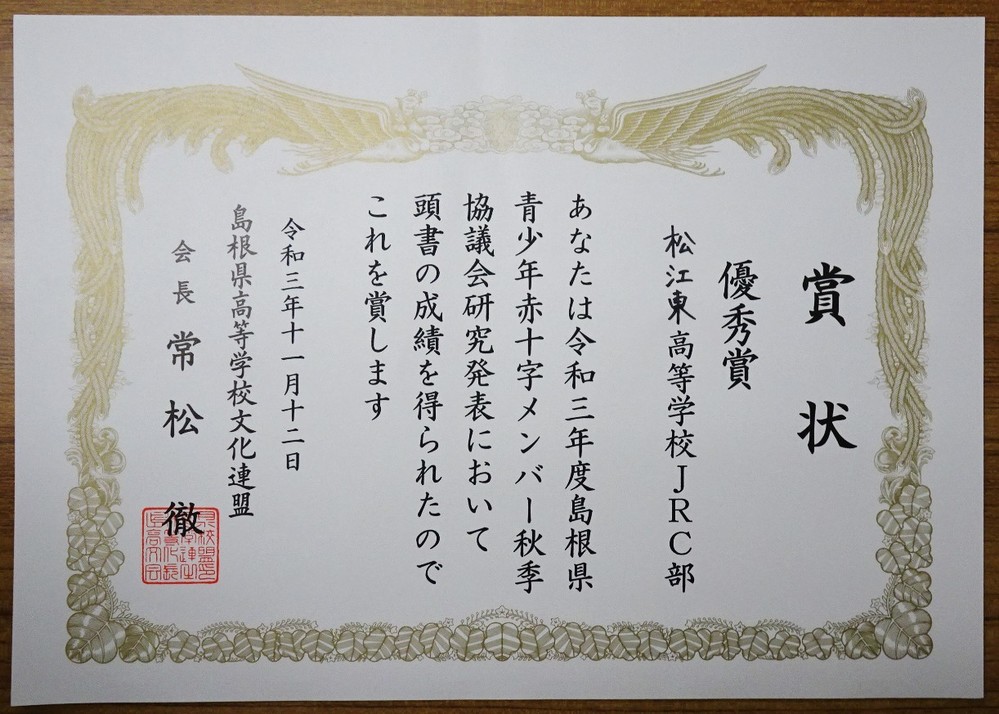 賞状
優秀賞
松江東高等学校JRC部
あなたは令和三年度島根県
青少年赤十字メンバー秋季
協議会研究発表において
頭書の成績を得られたので
これを賞します
令和三年十一月十二日
島根県高等学校文化連盟
会長 常松 徹